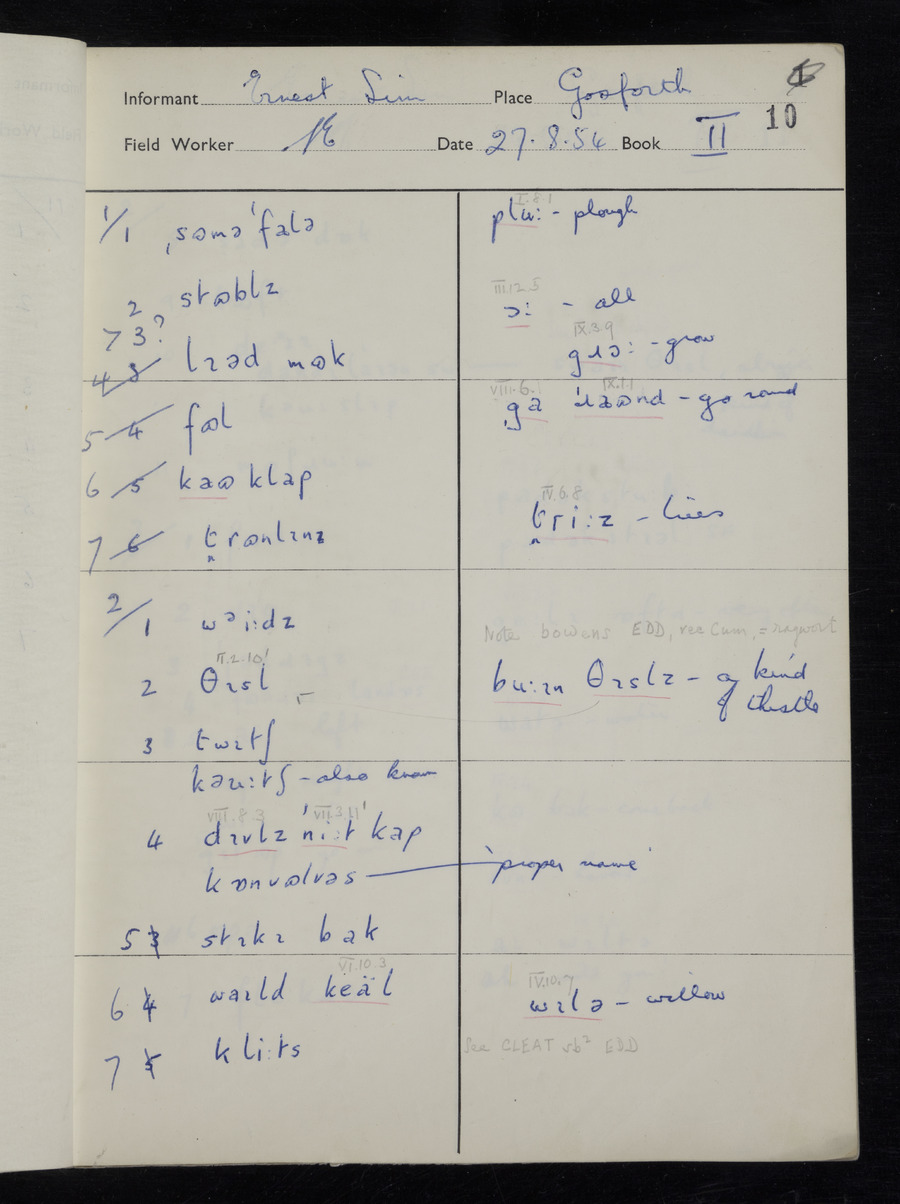 Informant Ernest Sim Place Gosforth
10
Field Worker Date 27.8.54 Book II
1/1 ˌsəmə ˈfalə
I.8.1
plu: - plough
2 stəblz
III.12.5
ɔ: - all
3?
4 3 lɪəd mək
IX.3.9
gɹɔ: - grow
5 4 fəl
VIII.6.1 IX.1.1
ga ˈɹaənd - go round
6 5 kaə klap
7 6 t̪rənlɪnz
IV.6.8
t̪ri:z - trees
2/1 wəi:dz
Note bowens EDD, rec Cum, = ragwort
II.2.10
2 θɪsl
bu:ɪn θɪslz - a kind
of thistle
3 twɪtʃ
kəu:tʃ - also known
VIII.8.3 VII.3.11
4 dɪvlz ni:t kap
kɒnvəlvəs 'proper name'
5 3 stɪkɪ bak
VI.10.3
6 4 waɪld keal
IV.10.7
wɪlə - willow
7 5 kli:ts
See CLEAT sb² EDD